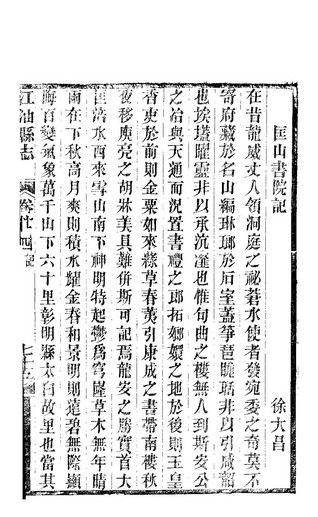 匡山書院記
徐大昌
在昔龍威丈人領洞庭之祕蒼水使者發宛委之奇莫不
寄府藏於名山編琳瑯於石室蓋箏琶聒耳非以引咸韶
也埃壒曜靈非以承沆瀣也惟句曲之樓無人到斯安公
之冶與天通而況置書禮之瑯拓嫏嬛之地於後則玉皇
香吏於前則金粟如來綠草春薰引康成之書帶南樓秋
夜移庾亮之胡牀美具難併斯可記焉龍安之勝實首大
匡涪水西來雪山南下神明特起鬱爲穹窿草木無年晴
雨在下秋高月爽則積水耀金春和景明則遠碧無際顯
晦百變氣象萬千山下六十里彰明縣太白故里也當其
江油縣志
卷廿四
記